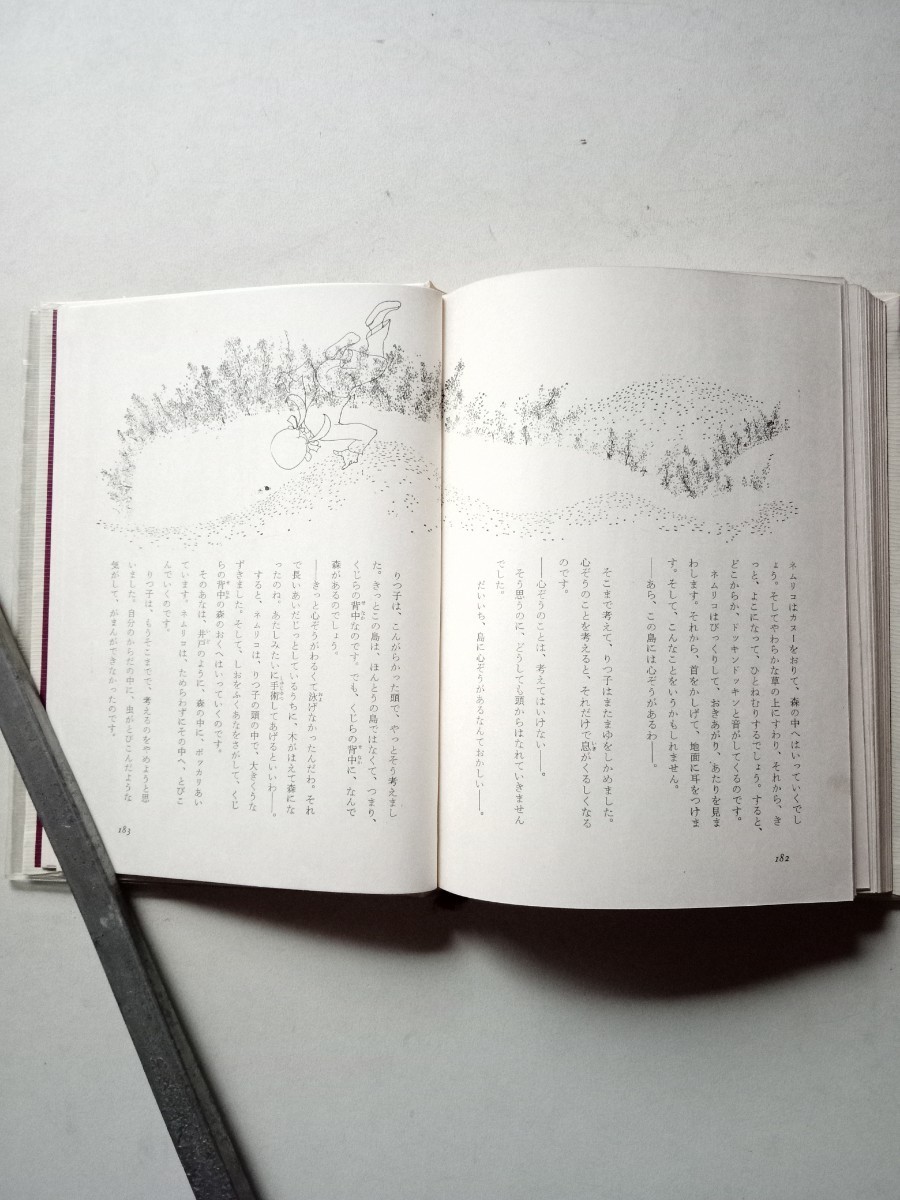 ネムリコはカヌーをおりて、森の中へはいっていくでし
ょう。そしてやわらかな草の上にすわり、それから、き
っと、よこになって、ひとねむりするでしょう。すると、
どこからか、ドッキンドッキンと音がしてくるのです。
ネムリコはびっくりして、おきあがり、あたりを見ま
わします。それから、首をかしげて、地面に耳をつけま
す。そして、こんなことをいうかもしれません。
――あら、この島には心ぞうがあるわ――。
そこまで考えて、りつ子はまたまゆをしかめました。
心ぞうのことを考えると、それだけで息がくるしくなる
のです。
――心ぞうのことは、考えてはいけない――。
そう思うのに、どうしても頭からはなれていきません
でした。
だいいち、島に心ぞうがあるなんておかしい――。
182
りつ子は、こんがらかった頭で、やっとそう考えまし
た。きっとこの島は、ほんとうの島ではなくて、つまり、
くじらの背中なのです。でも、くじらの背中に、なんで
森があるのでしょう。
――きっと心ぞうがわるくて泳げなかったんだわ。それ
で長いあいだじっとしているうちに、木がはえて森にな
ったのね。あたしみたいに手術してあげるといいわ――。
すると、ネムリコは、りつ子の頭の中で、大きくうな
ずきました。そして、しおをふくあなをさがして、くじ
らの背中の森のおくへはいっていくのです。
そのあなは、井戸のように、森の中に、ポッカリあい
ています。ネムリコは、ためらわずにその中へ、とびこ
んでいくのです。
りつ子は、もうそこまでで、考えるのをやめようと思
いました。自分のからだの中に、虫がとびこんだような
気がして、がまんができなかったのです。
183